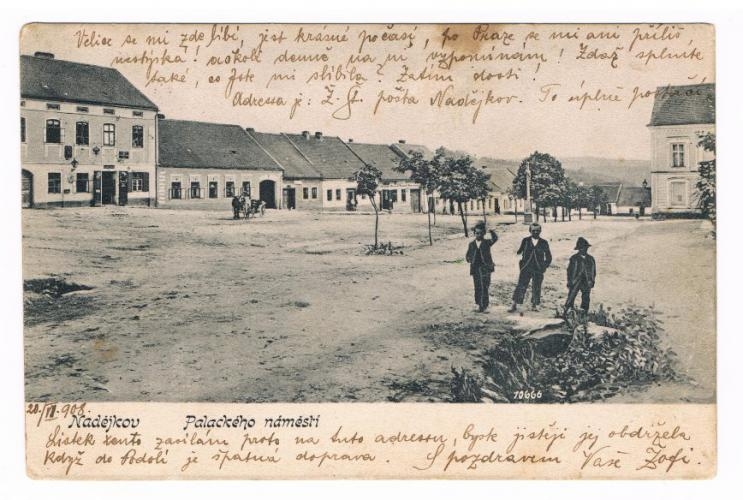 Velice se mi zde líbí, jest krásné počasí, po Praze se mi ani příliš
nestýská! okolí denně na ni vzpomínám! Zdaž splníte
také, co jste mi slíbila? Zatím dosti!
Adressa je: Ž. G. pošta Nadějkov. To úplně postačí
10666
20/VI. 908.
Nadějkov Palackého náměstí
Lístek tento zasílám proto na tuto adressu, byste jistěji jej obdržela
když do Podolí je špatná doprava. S pozdravem Vaše Žofi.